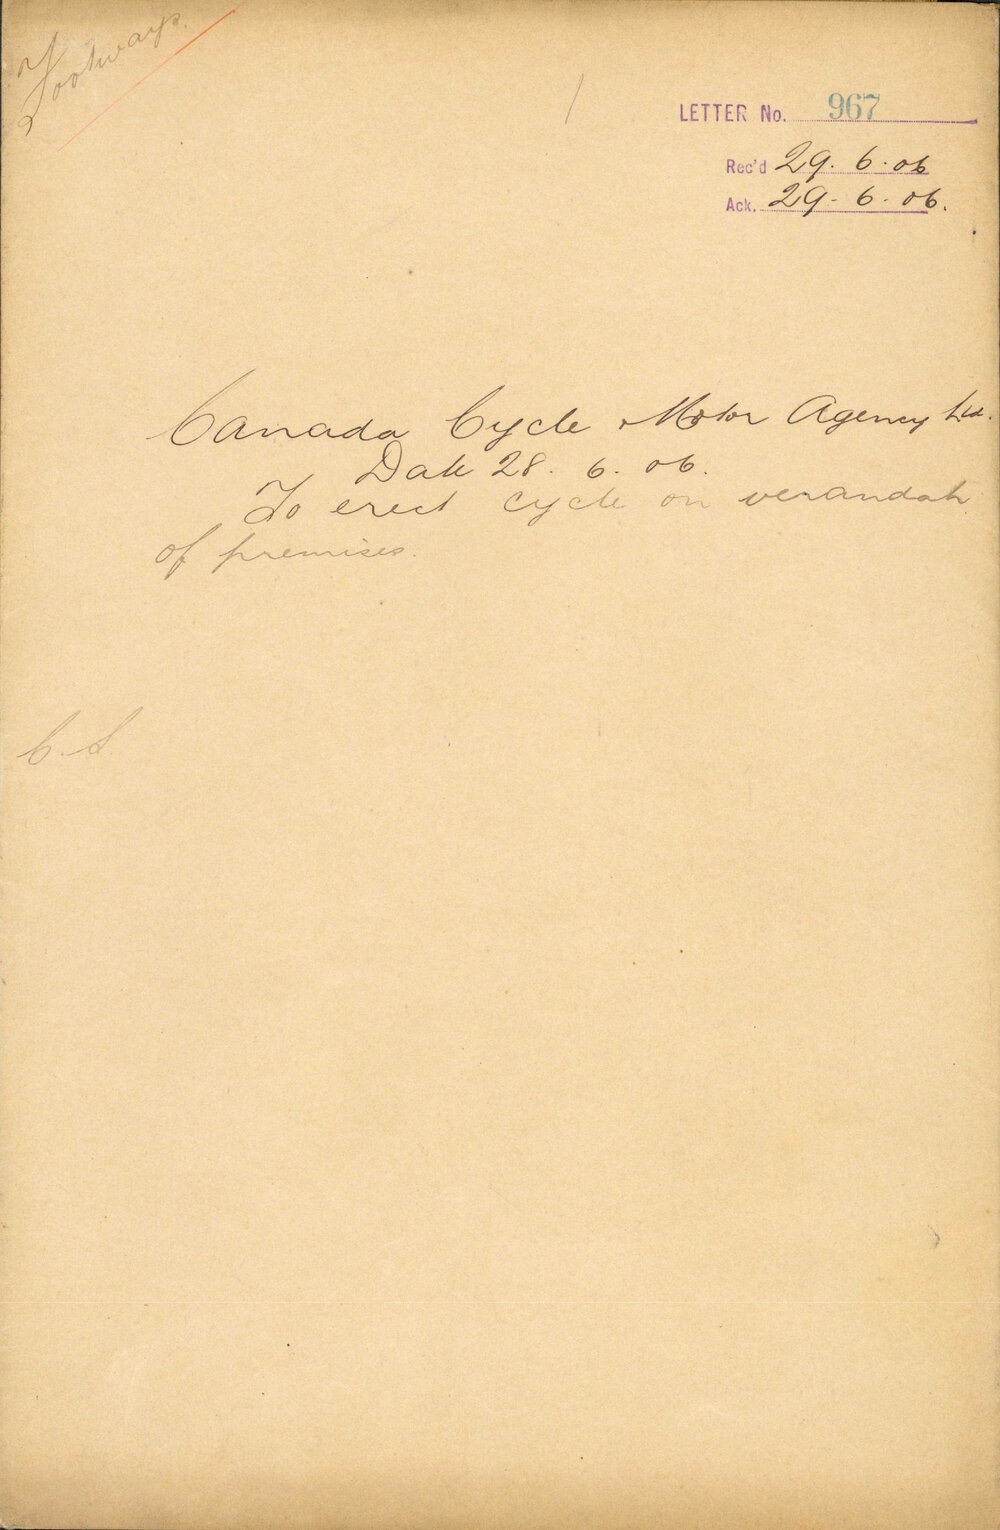 Footways.
LETTER No. 967
Rec'd 29. 6. 06
Ack. 29. 6. 06.
Canada Cycle & Motor Agency Ltd.
Date 28. 6. 06.
To erect cycle on verandah
of premises.
C. S.